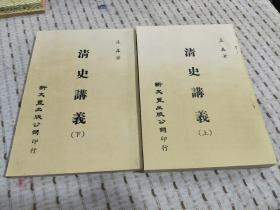 孟森著
清史講義(上)
新文豐出版公司印行
孟森著
清史講義(下)
新文豐出版公司印行